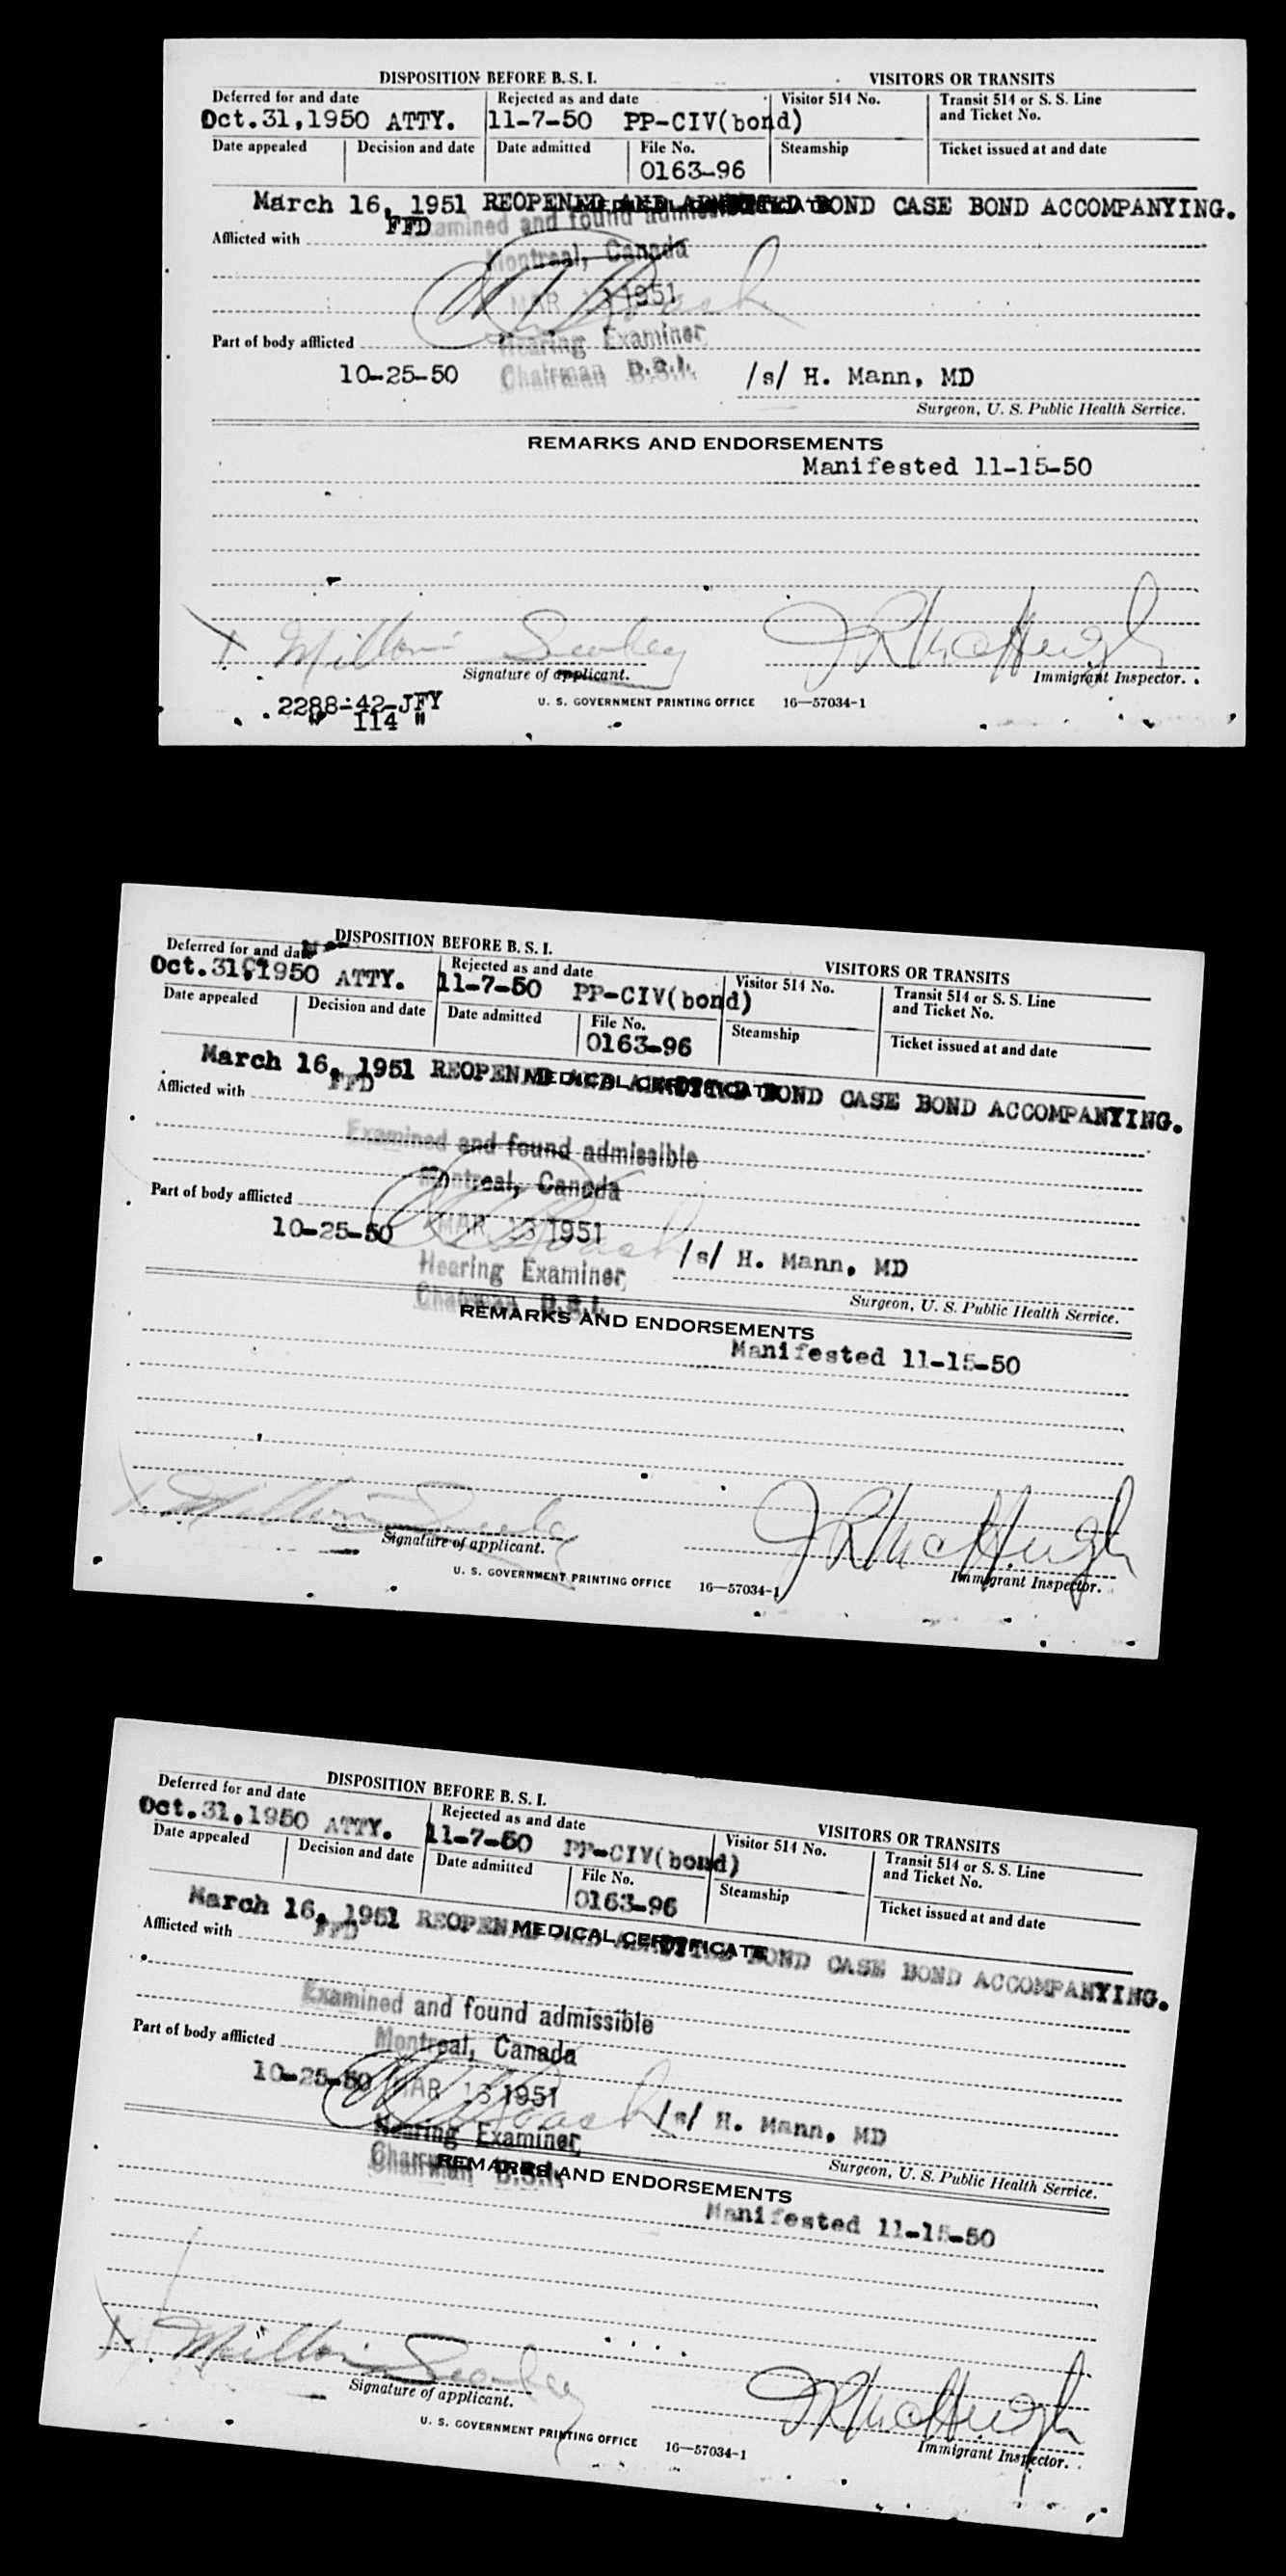 DISPOSITION BEFORE B. S. I.
VISITORS OR TRANSITS
Deferred for and date
Rejected as and date
Visitor 514 No.
Transit 514 or S. S. Line
and Ticket No.
Oct.31,1950 ATTY.
11-7-50 PP-CIV(bond)
Date appealed
Decision and date
Date admitted
File No.
Steamship
Ticket issued at and date
0163-96
March 16, 1951 REOPENED AND ADMITTED BOND CASE BOND ACCOMPANYING.
MEDICAL CERTIFICATE
FFD
Examined and found admissible
Afflicted with
Montreal, Canada
MAR 1951
Part of body afflicted
Hearing Examiner
10-25-50
Chairman B.S.I.
/s/ H. Mann, MD
Surgeon, U. S. Public Health Service.
REMARKS AND ENDORSEMENTS
Manifested 11-15-50
X
J R MacHugh
Signature of applicant.
Immigrant Inspector.
2288-42-JFY
" 114 "
U. S. GOVERNMENT PRINTING OFFICE 16—57034-1
DISPOSITION BEFORE B. S. I.
VISITORS OR TRANSITS
Deferred for and date
Rejected as and date
Visitor 514 No.
Transit 514 or S. S. Line
and Ticket No.
Oct.31,1950 ATTY.
11-7-50 PP-CIV(bond)
Date appealed
Decision and date
Date admitted
File No.
Steamship
Ticket issued at and date
0163-96
March 16, 1951 REOPENED AND ADMITTED BOND CASE BOND ACCOMPANYING.
MEDICAL CERTIFICATE
FFD
Afflicted with
Examined and found admissible
Montreal, Canada
Part of body afflicted
MAR 13 1951
10-25-50
/s/ H. Mann, MD
Hearing Examiner
Chairman B.S.I.
Surgeon, U. S. Public Health Service.
REMARKS AND ENDORSEMENTS
Manifested 11-15-50
X
J R MacHugh
Signature of applicant.
Immigrant Inspector.
U. S. GOVERNMENT PRINTING OFFICE 16—57034-1
DISPOSITION BEFORE B. S. I.
VISITORS OR TRANSITS
Deferred for and date
Rejected as and date
Visitor 514 No.
Transit 514 or S. S. Line
and Ticket No.
Oct.31,1950 ATTY.
11-7-50 PP-CIV(bond)
Date appealed
Decision and date
Date admitted
File No.
Steamship
Ticket issued at and date
0163-96
March 16, 1951 REOPENED AND ADMITTED BOND CASE BOND ACCOMPANYING.
MEDICAL CERTIFICATE
FFD
Afflicted with
Examined and found admissible
Part of body afflicted
Montreal, Canada
10-25-50
MAR 13 1951
/s/ H. Mann, MD
Hearing Examiner
Chairman B.S.I.
Surgeon, U. S. Public Health Service.
REMARKS AND ENDORSEMENTS
Manifested 11-15-50
X
J R MacHugh
Signature of applicant.
Immigrant Inspector.
U. S. GOVERNMENT PRINTING OFFICE 16—57034-1